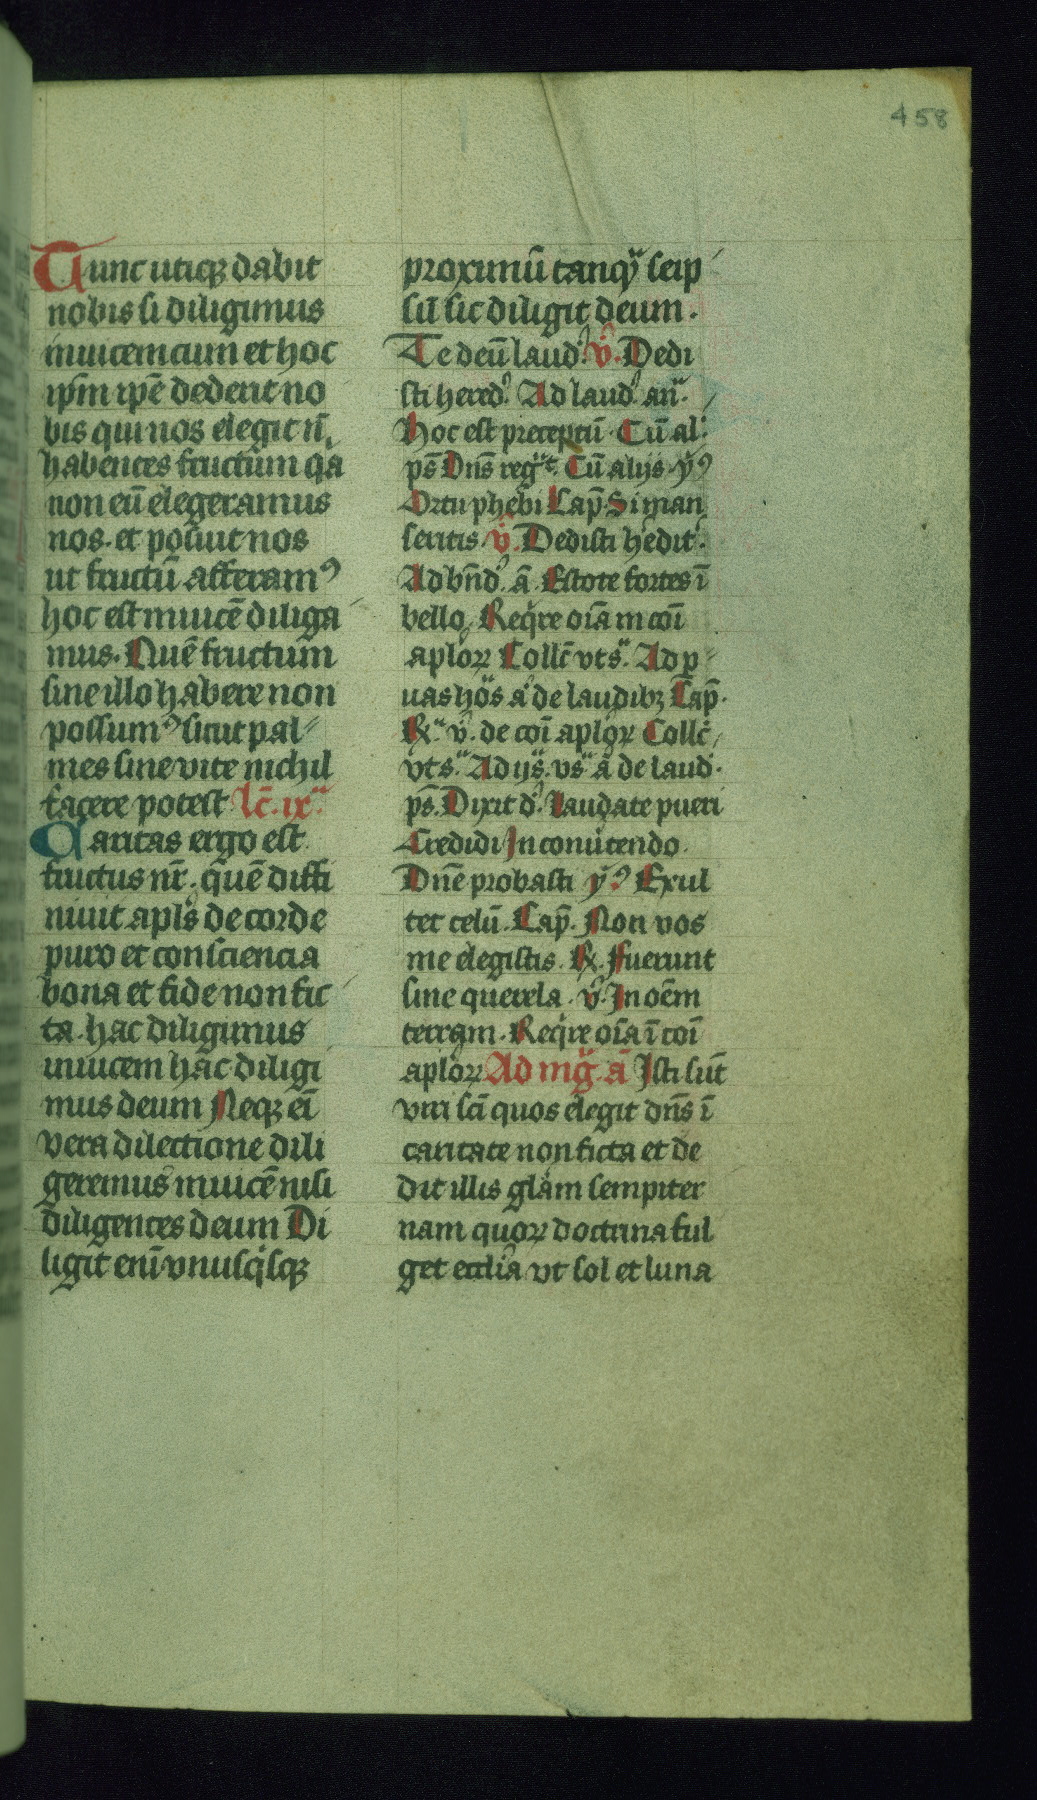 458
Tunc utiqꝫ dabit
nobis si diligimus
inuicem cum et hoc
ipm̄ ip̄e dederit no
bis qui nos elegit n̄
habentes fructum qa
non eū elegeramus
nos. et posuit nos
ut fructū afferamꝰ
hoc est inuicē diliga
mus. Quē fructum
sine illo habere non
possumꝰ sicut pal
mes sine vite nichil
facere potest lc̄. ix
Caritas ergo est
fructus nr̄. quē diffi
niuit apls̄ de corde
puro et consciencia
bona et fide non fic
ta. hac diligimus
inuicem hac diligi
mus deum Neqꝫ eī
vera dilectione dili
geremus inuicē nisi
diligentes deum Di
ligit enī vnusqͥsqꝫ
proximū tanqͣ seip
sū sic diligit deum.
Te deū laudꝰ. v̄. Dedi
sti heredꝰ. Ad laudꝰ an̄.
Hoc est preceptū Cū al
ps̄ Dn̄s regͣt. Cū alijs yꝰ
Ortu phebi Cap̄. Si man
seritis. v̄. Dedisti hedit.
Ad bn̄dꝰ. ā. Estote fortes ī
bello. Reqͥre oīa in coī
aplorꝝ Collc̄ vts̄. Ad p
uas hōs ā de laudibꝫ Cap̄.
℟. v̄. de coī aplorꝝ Collc̄
vts̄ Ad ijs̄. vs̄ ā de laud.
ps̄. Dixit dꝰ. Laudate pueri
Credidi In conuertendo.
Dn̄e probasti yꝰ Exul
tet celū. Cap̄. Non vos
me elegistis. ℟. Fuerunt
sine querela. v̄. In oēm
terram. Reqͥre oīa ī coī
aplorꝝ Ad mḡ. ā Isti sūt
viri sc̄i quos elegit dn̄s ī
caritate non ficta et de
dit illis glām sempiter
nam quorꝝ doctrina ful
get eccl̄ia vt sol et luna